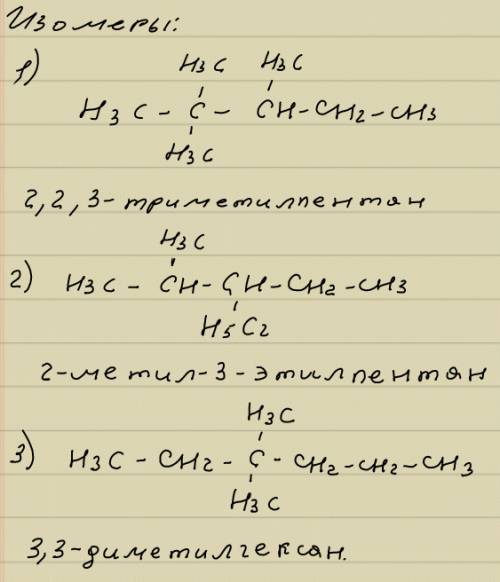 Изомеры:
1)
H3C H3C
H3C - C - CH-CH2-CH3
H3C
2,2,3-триметилпентан
H3C
2) H3C - CH-CH-CH2-CH3
H5C2
2-метил-3-этилпентан
H3C
3) H3C-CH2-C-CH2-CH2-CH3
H3C
3,3-диметилгексан.